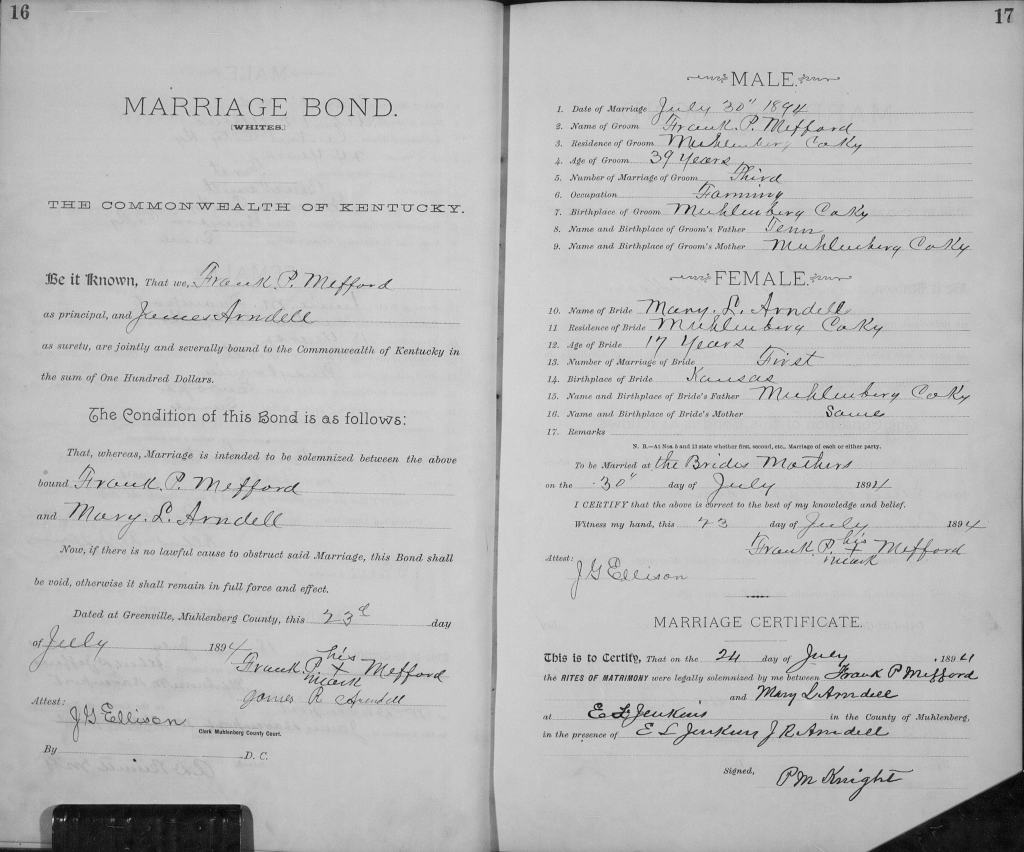 16
MARRIAGE BOND.
(WHITES.)
THE COMMONWEALTH OF KENTUCKY.
Be it Known, That we, Frank. P. Mefford
as principal, and James Arndell
as surety, are jointly and severally bound to the Commonwealth of Kentucky in
the sum of One Hundred Dollars.
The Condition of this Bond is as follows:
That, whereas, Marriage is intended to be solemnized between the above
bound Frank. P. Mefford
and Mary. L. Arndell
Now, if there is no lawful cause to obstruct said Marriage, this Bond shall
be void, otherwise it shall remain in full force and effect.
Dated at Greenville, Muhlenberg County, this 23d day
of July 1894
his
Frank. P. + Mefford
mark
James R Arndell
Attest:
J G Ellison
Clerk Muhlenberg County Court.
By D. C.
17
MALE.
1. Date of Marriage July 30" 1894
2. Name of Groom Frank. P. Mefford
3. Residence of Groom Muhlenberg Co Ky
4. Age of Groom 39 Years
5. Number of Marriage of Groom Third
6. Occupation Farming
7. Birthplace of Groom Muhlenberg Co Ky
8. Name and Birthplace of Groom's Father Tenn
9. Name and Birthplace of Groom's Mother Muhlenberg Co Ky
FEMALE.
10. Name of Bride Mary. L. Arndell
11 Residence of Bride Muhlenberg Co Ky
12. Age of Bride 17 Years
13. Number of Marriage of Bride First
14. Birthplace of Bride Kansas
15. Name and Birthplace of Bride's Father Muhlenberg Co Ky
16. Name and Birthplace of Bride's Mother Same
17. Remarks
N. B.—At Nos. 5 and 13 state whether first, second, etc., Marriage of each or either party.
To be Married at the Brides Mothers
on the 30" day of July 1894
I CERTIFY that the above is correct to the best of my knowledge and belief.
Witness my hand, this 23 day of July 1894
his
Frank. P. + Mefford
mark
Attest:
J G Ellison
MARRIAGE CERTIFICATE.
This is to Certify, That on the 24 day of July, 1894
the RITES OF MATRIMONY were legally solemnized by me between Frank P Mefford
and Mary L Arndell
at E L Jenkins in the County of Muhlenberg,
in the presence of E L Jenkins J R Arndell
Signed, P M Knight